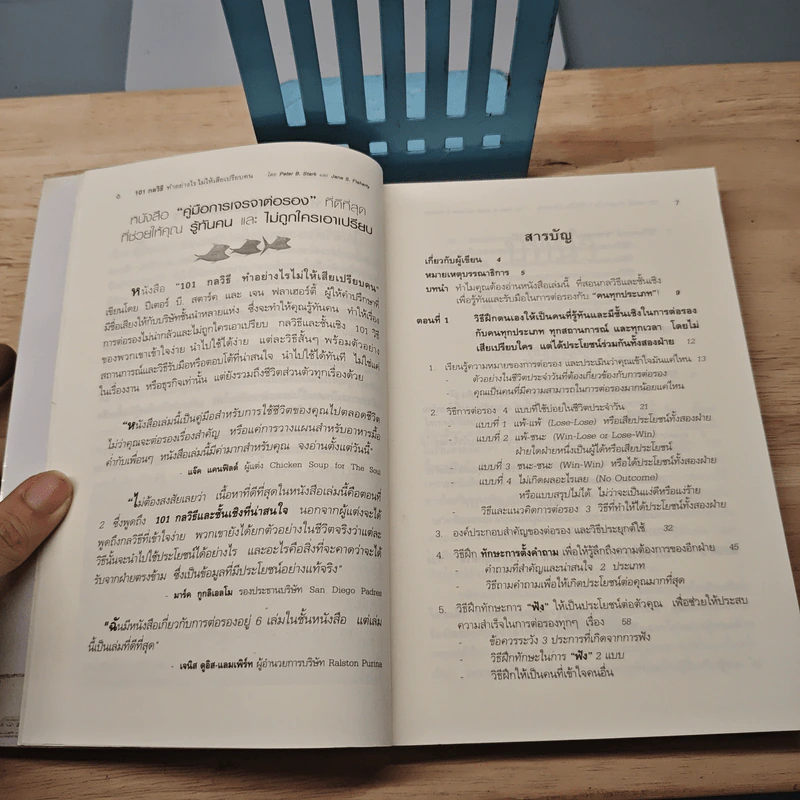 6
101 กลวิธี ทำอย่างไร ไม่ให้เสียเปรียบคน โดย Peter B. Stark และ Jane S. Flaherty
หนังสือ "คู่มือการเจรจาต่อรอง" ที่ดีที่สุด
ที่ช่วยให้คุณ รู้ทันคน และ ไม่ถูกใครเอาเปรียบ
หนังสือ "101 กลวิธี ทำอย่างไรไม่ให้เสียเปรียบคน"
เขียนโดย ปีเตอร์ บี. สตาร์ค และ เจน ฟลาเฮอร์ตี้ ผู้ให้คำปรึกษาที่
มีชื่อเสียงให้กับบริษัทชั้นนำหลายแห่ง ซึ่งจะทำให้คุณรู้ทันคน ทำให้เรื่อง
การต่อรองไม่น่ากลัวและไม่ถูกใครเอาเปรียบ กลวิธีและชั้นเชิง 101 วิธี
ของพวกเขาเข้าใจง่าย นำไปใช้ได้ง่าย แต่ละวิธีสั้นๆ พร้อมตัวอย่าง
สถานการณ์และวิธีรับมือหรือตอบโต้ที่น่าสนใจ นำไปใช้ได้ทันที ไม่ใช่แค่
ในเรื่องงาน หรือธุรกิจเท่านั้น แต่ยังรวมถึงชีวิตส่วนตัวทุกเรื่องด้วย
"หนังสือเล่มนี้เป็นคู่มือสำหรับการใช้ชีวิตของคุณไปตลอดชีวิต
ไม่ว่าคุณจะต่อรองเรื่องสำคัญ หรือแค่การวางแผนสำหรับอาหารมื้อ
ค่ำกับเพื่อนๆ หนังสือเล่มนี้มีค่ามากสำหรับคุณ จงอ่านตั้งแต่วันนี้"
- แจ๊ค แคนฟิลด์ ผู้แต่ง Chicken Soup for The Soul
"ไม่ต้องสงสัยเลยว่า เนื้อหาที่ดีที่สุดในหนังสือเล่มนี้คือตอนที่
2 ซึ่งพูดถึง 101 กลวิธีและชั้นเชิงที่น่าสนใจ นอกจากผู้แต่งจะได้
พูดถึงกลวิธีที่เข้าใจง่าย พวกเขายังได้ยกตัวอย่างในชีวิตจริงว่าแต่ละ
วิธีนั้นจะนำไปใช้ประโยชน์ได้อย่างไร และอะไรคือสิ่งที่จะคาดว่าจะได้
รับจากฝ่ายตรงข้าม ซึ่งเป็นข้อมูลที่มีประโยชน์อย่างแท้จริง"
- มาร์ค กูกลิเอลโม รองประธานบริษัท San Diego Padres
"ฉันมีหนังสือเกี่ยวกับการต่อรองอยู่ 6 เล่มในชั้นหนังสือ แต่เล่ม
นี้เป็นเล่มที่ดีที่สุด"
- เจนิส ดูอิส-แลมเพิร์ท ผู้อำนวยการบริษัท Ralston Purina
7
สารบัญ
เกี่ยวกับผู้เขียน 4
หมายเหตุบรรณาธิการ 5
บทนำ ทำไมคุณต้องอ่านหนังสือเล่มนี้ ที่สอนกลวิธีและชั้นเชิง
เพื่อรู้ทันและรับมือในการต่อรองกับ "คนทุกประเภท"! 9
ตอนที่ 1 วิธีฝึกตนเองให้เป็นคนที่รู้ทันและมีชั้นเชิงในการต่อรอง
กับคนทุกประเภท ทุกสถานการณ์ และทุกเวลา โดยไม่
เสียเปรียบใคร แต่ได้ประโยชน์ร่วมกันทั้งสองฝ่าย 12
1. เรียนรู้ความหมายของการต่อรอง และประเมินว่าคุณเข้าใจมันแค่ไหน 13
- ตัวอย่างในชีวิตประจำวันที่ต้องเกี่ยวข้องกับการต่อรอง
คุณเป็นคนที่มีความสามารถในการต่อรองมากน้อยแค่ไหน
2. วิธีการต่อรอง 4 แบบที่ใช้บ่อยในชีวิตประจำวัน 21
- แบบที่ 1 แพ้-แพ้ (Lose-Lose) หรือเสียประโยชน์ทั้งสองฝ่าย
- แบบที่ 2 แพ้-ชนะ (Win-Lose or Lose-Win)
ฝ่ายใดฝ่ายหนึ่งเป็นผู้ได้หรือเสียประโยชน์
- แบบที่ 3 ชนะ-ชนะ (Win-Win) หรือได้ประโยชน์ทั้งสองฝ่าย
- แบบที่ 4 ไม่เกิดผลอะไรเลย (No Outcome)
หรือแบบสรุปไม่ได้ ไม่ว่าจะเป็นแง่ดีหรือแง่ร้าย
- วิธีและแนวคิดการต่อรอง 3 วิธีที่ทำให้ได้ประโยชน์ทั้งสองฝ่าย
3. องค์ประกอบสำคัญของต่อรอง และวิธีประยุกต์ใช้ 32
4. วิธีฝึก ทักษะการตั้งคำถาม เพื่อให้รู้ลึกถึงความต้องการของอีกฝ่าย 45
- คำถามที่สำคัญและน่าสนใจ 2 ประเภท
- วิธีถามคำถามเพื่อให้เกิดประโยชน์ต่อคุณมากที่สุด
5. วิธีฝึกทักษะการ "ฟัง" ให้เป็นประโยชน์ต่อตัวคุณ เพื่อช่วยให้ประสบ
ความสำเร็จในการต่อรองทุกๆ เรื่อง 58
- ข้อควรระวัง 3 ประการที่เกิดจากการฟัง
- วิธีฝึกทักษะในการ "ฟัง" 2 แบบ
- วิธีฝึกให้เป็นคนที่เข้าใจคนอื่น